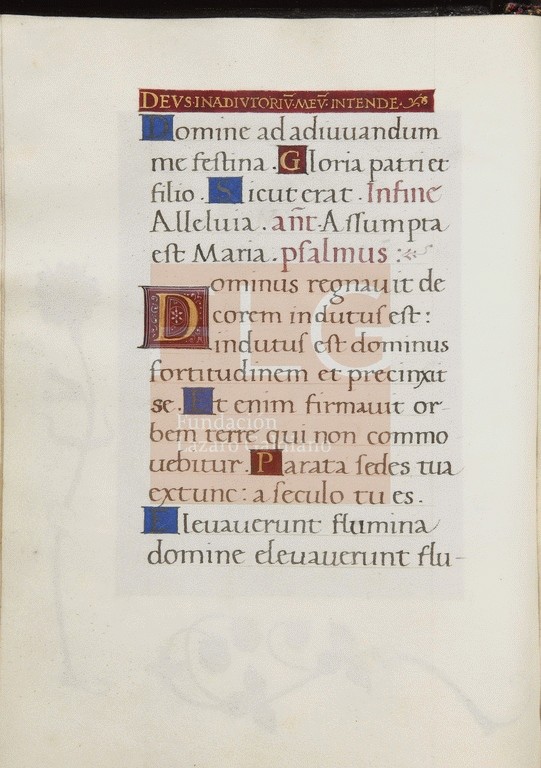 DEVS·IN ADIVTORIV̄·MEV̄·INTENDE·
Domine ad adiuuandum
me festina. Gloria patri et
filio. Sicut erat. In fine
Alleluia. an̄t. Assumpta
est Maria. psalmus :
Dominus regnauit de
corem indutus est:
indutus est dominus
fortitudinem et precinxit
se. Et enim firmauit or-
bem terre qui non commo
uebitur. Parata sedes tua
ex tunc: a seculo tu es.
Eleuauerunt flumina
domine eleuauerunt flu-
FLG
Fundación
Lázaro Galdiano